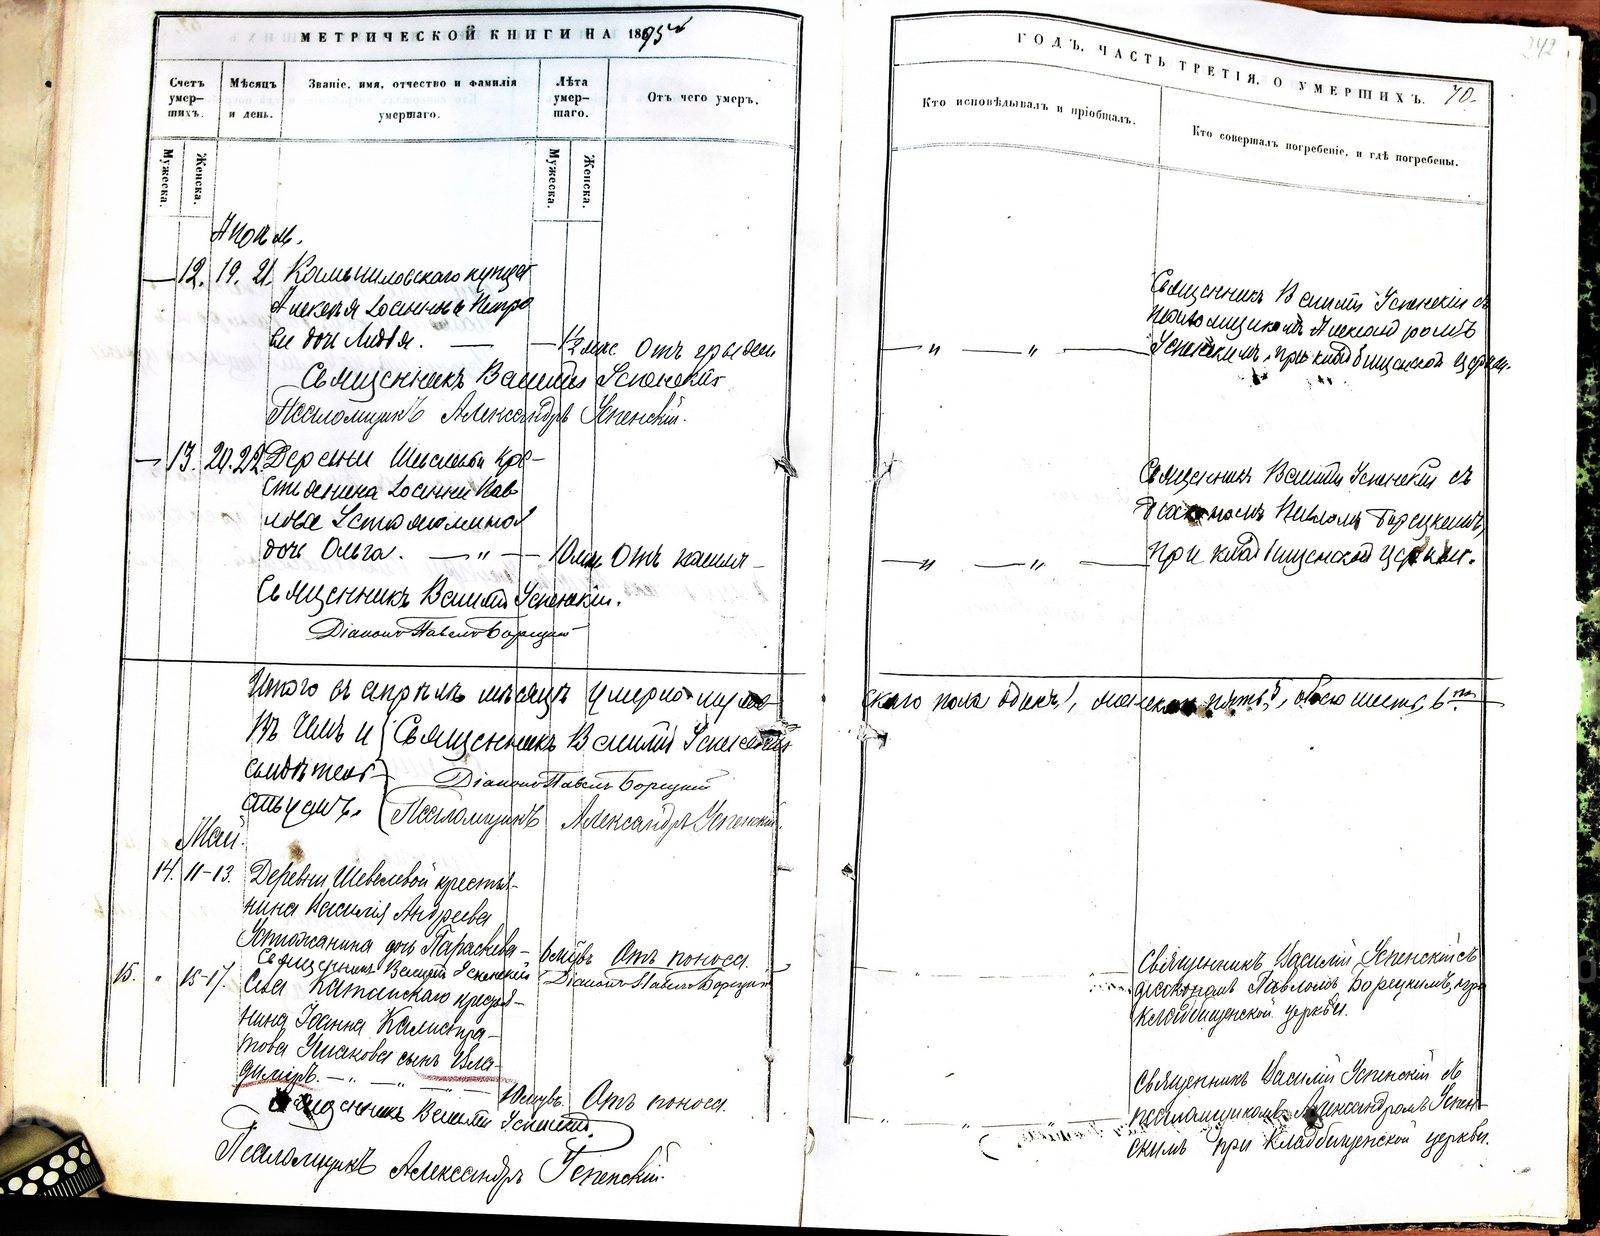 МЕТРИЧЕСКОЙ КНИГИ НА 1895
Счетъ умер-шихъ.
Мѣсяцъ и день.
Званіе, имя, отчество и фамилія умершаго.
Лѣта умер-шаго.
Отъ чего умеръ.
Мужеска.
Женска.
Мужеска.
Женска.
Апрѣль.
12. 19. 21. Камышловскаго купца
Алексѣя Іоаннова Петро
ва дочь Лидія. — — ½ мѣс. Отъ
Священникъ Василій Успенскій
Псаломщикъ Александръ Успенскій.
— 13. 20. 22. Деревни Шевелевой кре-
стьянина Іоанна Пав
лова Устюжанинова
дочь Ольга. — „ — Отъ кашля
Священникъ Василій Успенскій.
Діаконъ Павелъ Борецкій
Итого въ апрѣлѣ мѣсяцѣ умерло муже
Въ чемъ и Священникъ Василій Успенскій
свидѣтель
ствуемъ.
Діаконъ Павелъ Борецкій
Псаломщикъ Александръ Успенскій.
Май.
14. 11-13. Деревни Шевелевой крестья-
нина Василія Андреева
Устюжанина дочь Параскева — Отъ поноса.
Священникъ Василій Успенскій Діаконъ Павелъ Борецкій
15. „ 15-17. Села Катайскаго кресть-
нина Іоанна Калистра-
това Ушакова сынъ Вла-
димiръ. — „ — „ — Отъ поноса.
Священникъ Василій Успенскій.
Псаломщикъ Александръ Успенскій.
242
ГОДЪ, ЧАСТЬ ТРЕТІЯ, О УМЕРШИХЪ. 70.
Кто исповѣдывалъ и пріобщалъ.
Кто совершалъ погребеніе, и гдѣ погребены.
Священникъ Василій Успенскій съ
псаломщикомъ Александромъ
— „ — „ — Успенскимъ, при кладбищенской церкви.
Священникъ Василій Успенскій съ
діакономъ Павломъ Борецкимъ,
— „ — „ — при кладбищенской церкви.
скаго пола одинъ 1, женскаго пять 5, обоего шесть 6.
Священникъ Василій Успенскій съ
діакономъ Павломъ Борецкимъ, при
кладбищенской церкви.
Священникъ Василій Успенскій съ
псаломщикомъ Александромъ Успен-
скимъ при кладбищенской церкви.